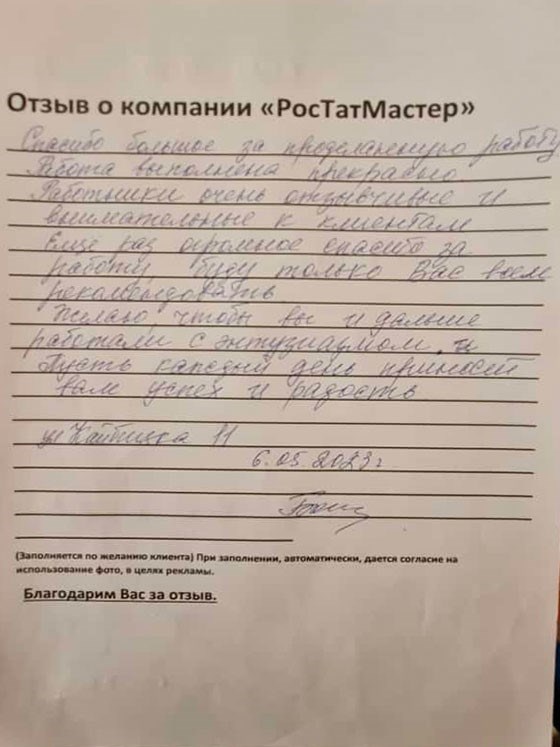 Отзыв о компании «РосТатМастер»
Спасибо большое за проделанную работу
Работа выполнена прекрасно
Работники очень отзывчивые и
внимательные к клиентам
Еще раз огромное спасибо за
работу буду только Вас всем
рекомендовать
Желаю, чтобы вы и дальше
работали с энтузиазмом и
Пусть каждый день приносит
вам успех и радость
ул 11
6.05.2023г
(Заполняется по желанию клиента) При заполнении, автоматически, дается согласие на
использование фото, в целях рекламы.
Благодарим Вас за отзыв.